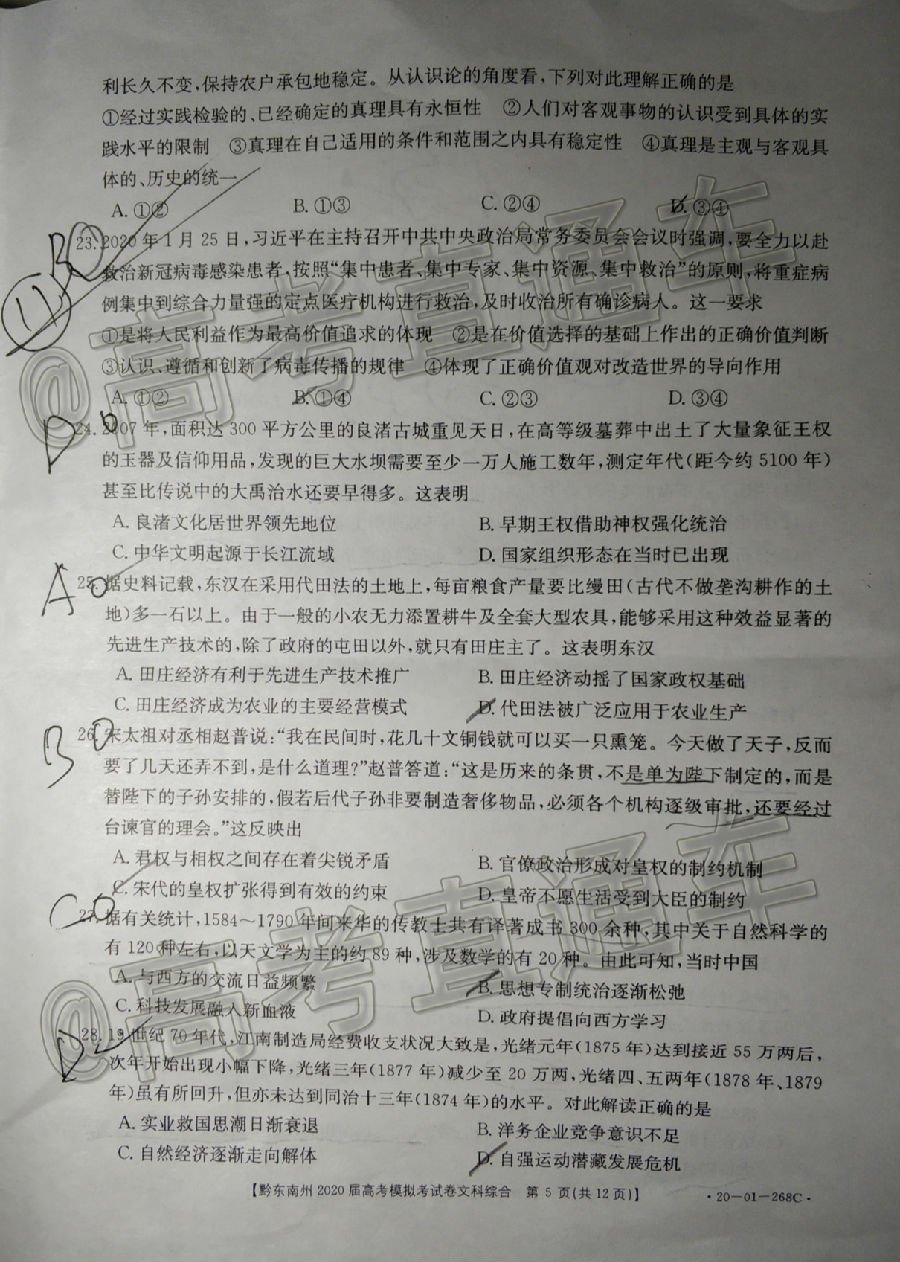 利长久不变,保持农户承包地稳定。从认识论的角度看,下列对此理解正确的是
①经过实践检验的、已经确定的真理具有永恒性 ②人们对客观事物的认识受到具体的实
践水平的限制 ③真理在自己适用的条件和范围之内具有稳定性 ④真理是主观与客观具
体的、历史的统一
A. ①② B. ①③ C. ②④ D. ③④
23. 2020年1月25日,习近平在主持召开中共中央政治局常务委员会会议时强调,要全力以赴
救治新冠病毒感染患者,按照“集中患者、集中专家、集中资源、集中救治”的原则,将重症病
例集中到综合力量强的定点医疗机构进行救治,及时收治所有确诊病人。这一要求
①是将人民利益作为最高价值追求的体现 ②是在价值选择的基础上作出的正确价值判断
③认识、遵循和创新了病毒传播的规律 ④体现了正确价值观对改造世界的导向作用
A. ①② B. ①④ C. ②③ D. ③④
24. 2007年,面积达300平方公里的良渚古城重见天日,在高等级墓葬中出土了大量象征王权
的玉器及信仰用品,发现的巨大水坝需要至少一万人施工数年,测定年代(距今约5100年)
甚至比传说中的大禹治水还要早得多。这表明
A. 良渚文化居世界领先地位 B. 早期王权借助神权强化统治
C. 中华文明起源于长江流域 D. 国家组织形态在当时已出现
25. 据史料记载,东汉在采用代田法的土地上,每亩粮食产量要比缦田(古代不做垄沟耕作的土
地)多一石以上。由于一般的小农无力添置耕牛及全套大型农具,能够采用这种效益显著的
先进生产技术的,除了政府的屯田以外,就只有田庄主了。这表明东汉
A. 田庄经济有利于先进生产技术推广 B. 田庄经济动摇了国家政权基础
C. 田庄经济成为农业的主要经营模式 D. 代田法被广泛应用于农业生产
26. 宋太祖对丞相赵普说:“我在民间时,花几十文铜钱就可以买一只熏笼。今天做了天子,反而
要了几天还弄不到,是什么道理?”赵普答道:“这是历来的条贯,不是单为陛下制定的,而是
替陛下的子孙安排的,假若后代子孙非要制造奢侈物品,必须各个机构逐级审批,还要经过
台谏官的理会。”这反映出
A. 君权与相权之间存在着尖锐矛盾 B. 官僚政治形成对皇权的制约机制
C. 宋代的皇权扩张得到有效的约束 D. 皇帝不愿生活受到大臣的制约
27. 据有关统计,1584～1790年间来华的传教士共有译著成书300余种,其中关于自然科学的
有120种左右,以天文学为主的约89种,涉及数学的有20种。由此可知,当时中国
A. 与西方的交流日益频繁 B. 思想专制统治逐渐松弛
C. 科技发展融入新血液 D. 政府提倡向西方学习
28. 19世纪70年代,江南制造局经费收支状况大致是,光绪元年(1875年)达到接近55万两后,
次年开始出现小幅下降,光绪三年(1877年)减少至20万两,光绪四、五两年(1878年、1879
年)虽有所回升,但亦未达到同治十三年(1874年)的水平。对此解读正确的是
A. 实业救国思潮日渐衰退 B. 洋务企业竞争意识不足
C. 自然经济逐渐走向解体 D. 自强运动潜藏发展危机
【黔东南州2020届高考模拟考试卷文科综合 第5页(共12页)】 ·20-01-268C·
@高考直通车
@高考直通车
B
D
A
B
C
D